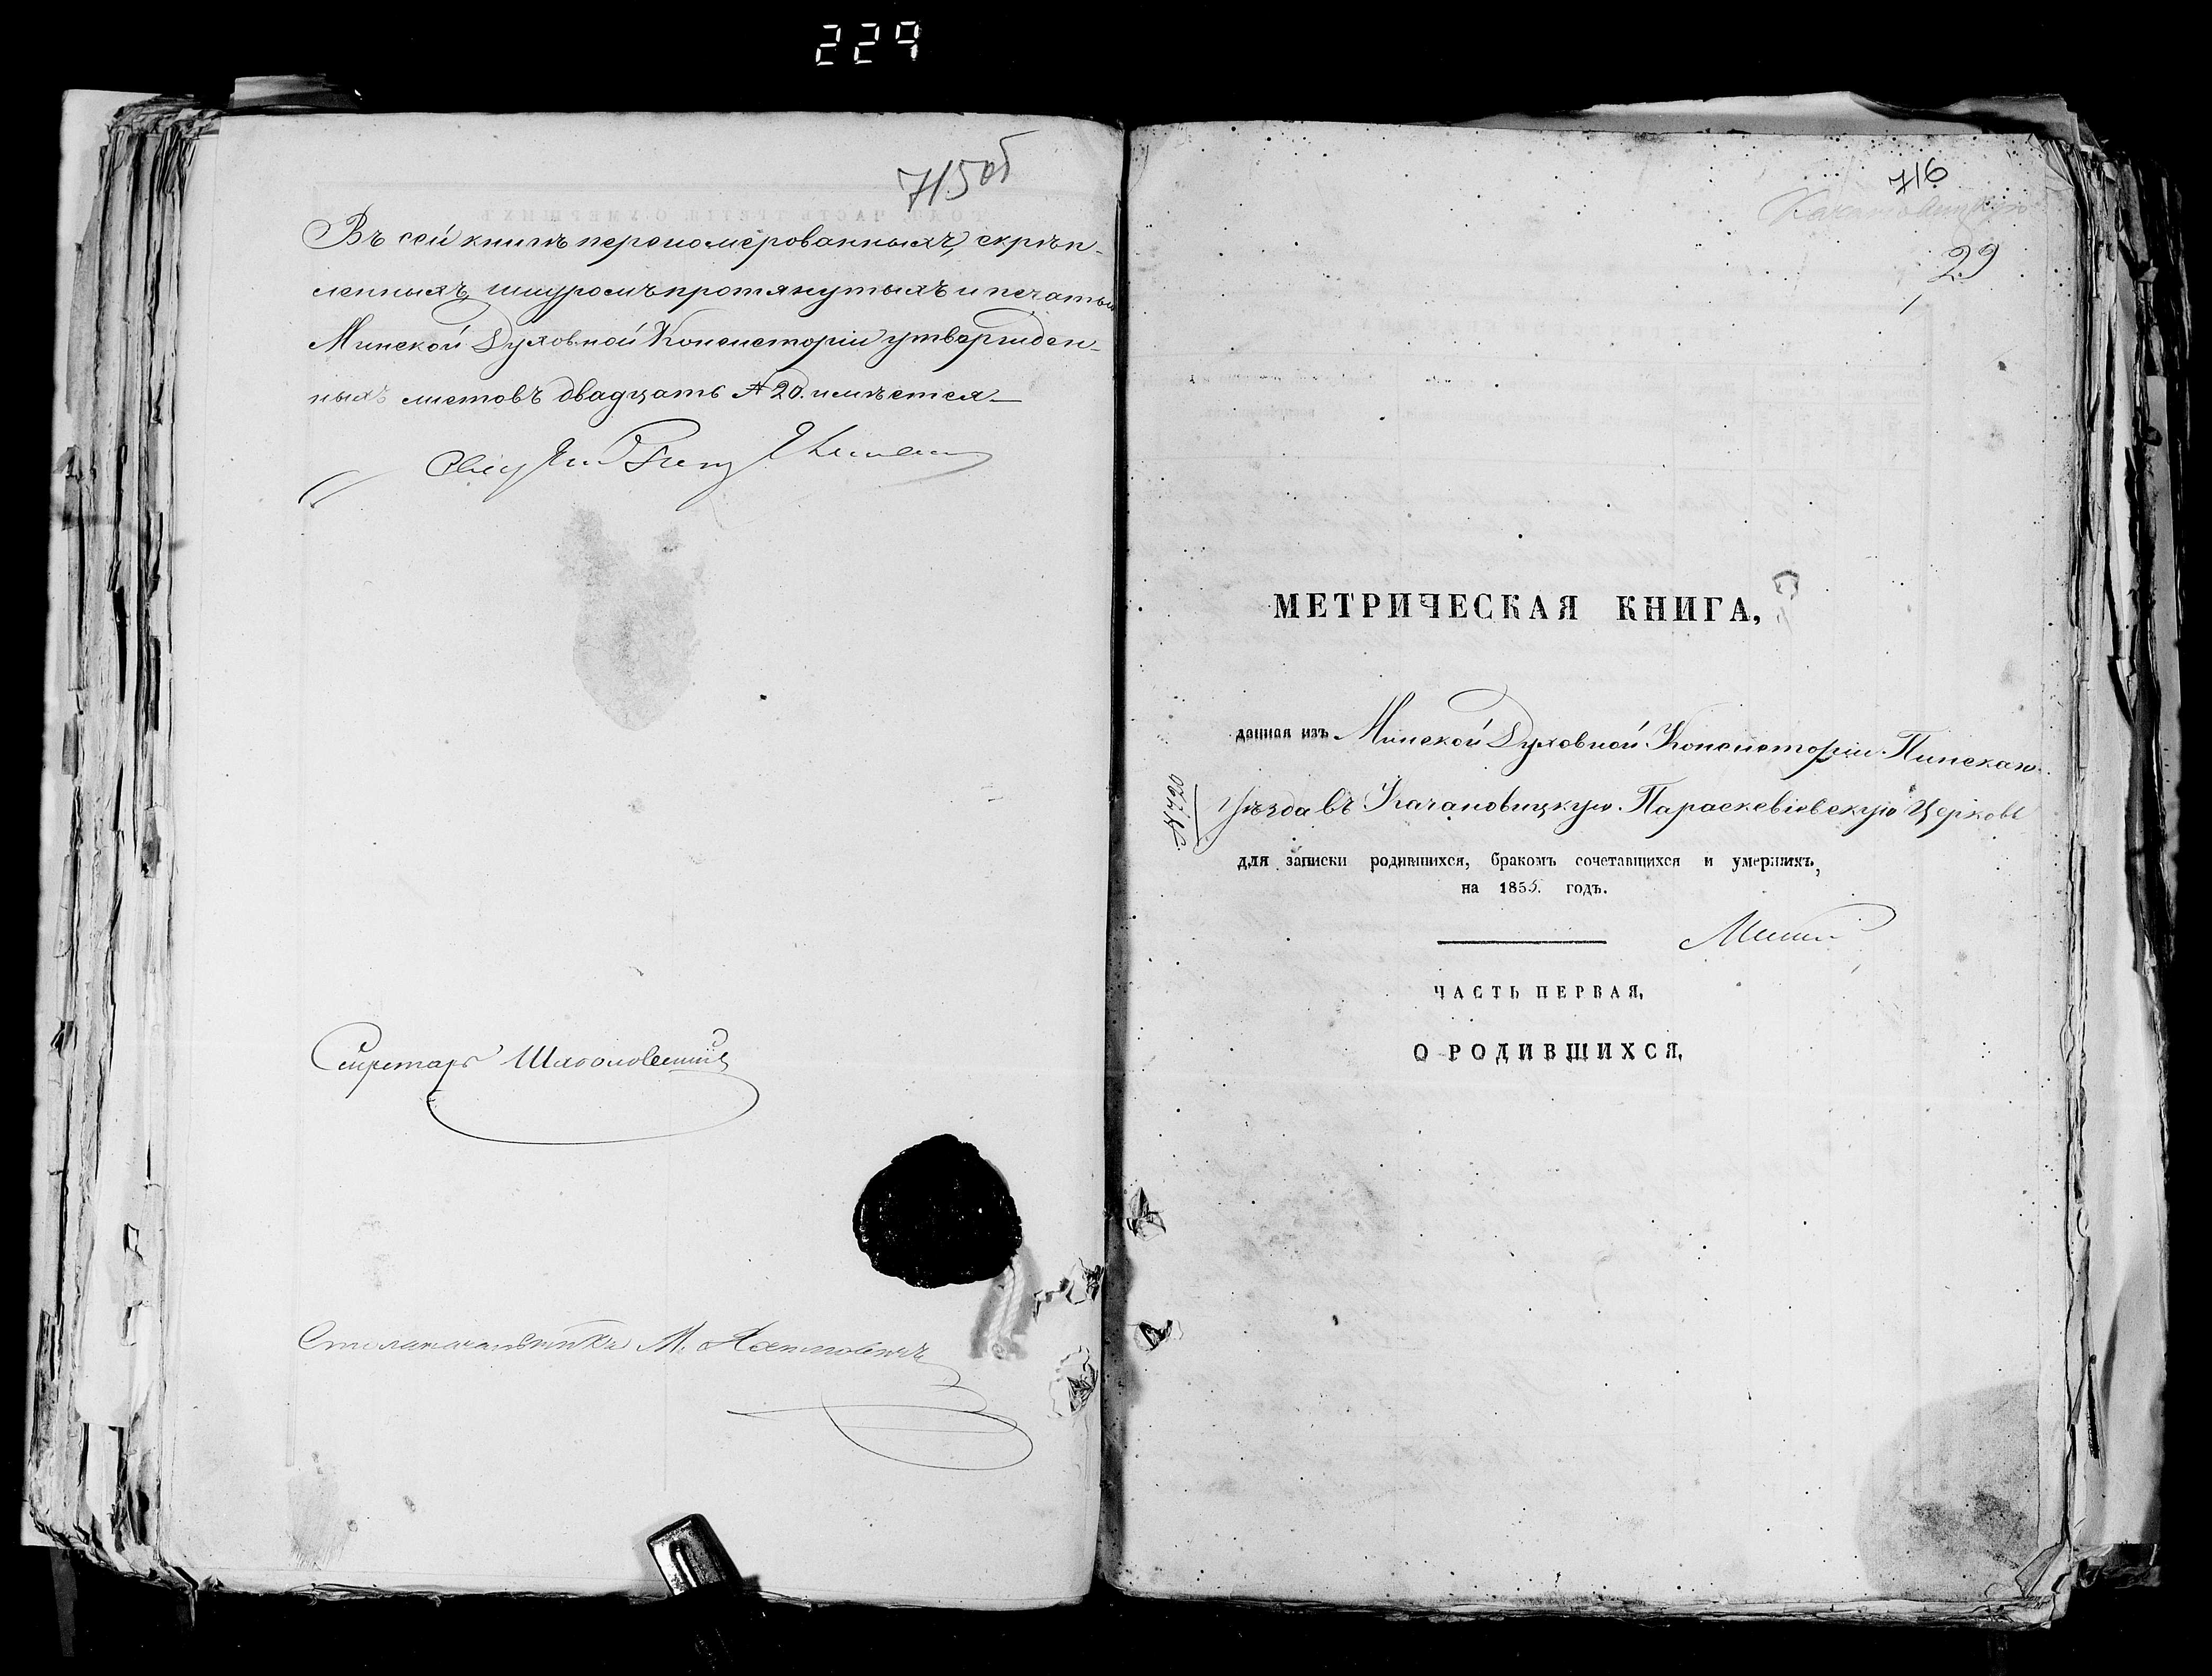 229
715 об
Въ сей книгѣ перономерованныхъ, скрѣп-
ленныхъ, шнуромъ протянутыхъ и печатью
Минской Духовной Консисторіи утвержден-
ныхъ листовъ двадцать № 20. имѣется
Секретарь
Столоначальникъ М.
716
Качановицкую
29
1
МЕТРИЧЕСКАЯ КНИГА,
данная изъ Минской Духовной Консисторіи Пинскаго
№ 720
Уѣзда въ Качановицкую Параскевіевскую Церковь
для записки родившихся, бракомъ сочетавшихся и умершихъ,
на 1855. годъ.
ЧАСТЬ ПЕРВАЯ,
О РОДИВШИХСЯ,